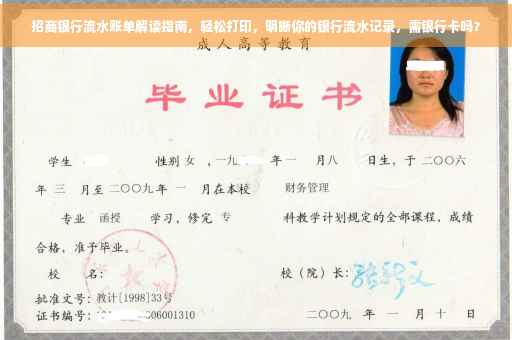 招商银行流水账单解读指南，轻松打印，明晰你的银行流水记录，需银行卡吗?
成人高等教育
毕业证书
学生 性别 女 ，一九 年一 月八 日生，于二〇〇六
年 三 月至二〇〇九年 一 月在本校 财务管理
专业 函授 学习，修完 专 科教学计划规定的全部课程，成绩
合格，准予毕业。
校 名： 校（院）长：
批准文号：教计[1998]33号
证书编号： 06001310 二〇〇九 年 一 月 十 日